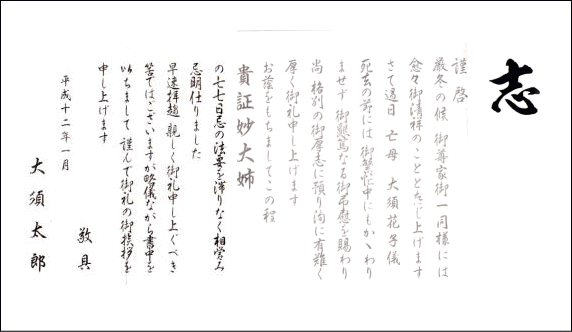 志
謹啓
厳冬の候 御尊家御一同様には
愈々御清祥のこととたじ上げます
さて過日 亡母 大須花子儀
死去の節には 御繁忙中にもかゝわり
ませず 御懇篤なる御弔慰を賜わり
尚 格別の御厚志に預り洵に有難く
厚く御礼申し上げます
お蔭をもちましてこの程
貴証妙大姉
の七七日忌の法要を滞りなく相営み
忌明仕りました
早速拝趨 親しく御礼申し上ぐべき
筈ではございますが略儀ながら書中を
以ちまして 謹んで御礼の御挨拶を
申し上げます
敬具
平成十二年一月
大須太郎